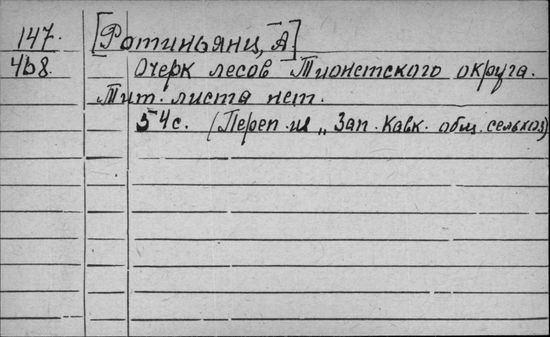 147. [Ротиньянц, А]
468. Очерк лесов Тионетского округа.
Тит. листа нет.
54с. (Переп. из „Зап. Кавк. общ. сельхоз)